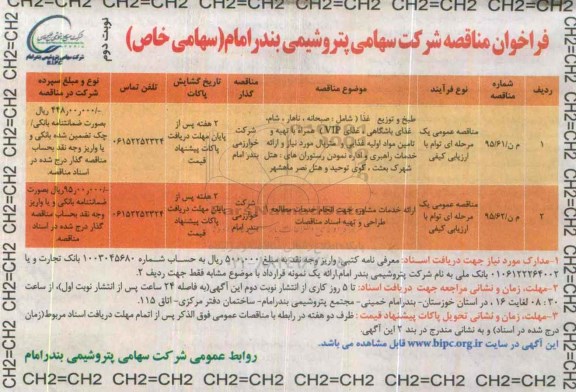 فراخوان مناقصه شرکت سهامی پتروشیمی بندر امام(سهامی خاص)
نوبت دوم
شرکت سهامی پتروشیمی بندر امام
BIPC
ردیف
شماره مناقصه
نوع فرآیند
موضوع مناقصه
مناقصه گذار
تاریخ گشایش پاکات
تلفن تماس
نوع و مبلغ سپرده شرکت در مناقصه
۱
م ن/۹۵/۶۱
مناقصه عمومی یک
مرحله ای توام با
ارزیابی کیفی
طبخ و توزیع غذا ( شامل : صبحانه ، ناهار ، شام،
غذای باشگاهی ، غذای VIP) همراه با تهیه و
تامین مواد اولیه غذایی و متریال مورد نیاز و ارائه
خدمات راهبری و اداره نمودن رستوران های : هتل
شهرک بعثت ، کوی توحید و هتل نصر ماهشهر
شرکت
خوارزمی
بندر امام
۲ هفته پس از
پایان مهلت دریافت
پاکات پیشنهاد
قیمت
۰۶۱۵۲۲۵۲۳۲۴
۴۴۸٫۰۰۰٫۰۰۰ ریال
بصورت ضمانتنامه بانکی/
چک تضمین شده بانکی و
یا واریز وجه نقد بحساب
مناقصه گذار درج شده در
اسناد مناقصه.
۲
م ن/۹۵/۶۲
مناقصه عمومی یک
مرحله ای توام با
ارزیابی کیفی
ارائه خدمات مشاوره جهت انجام خدمات مطالعه ،
طراحی و تهیه اسناد مناقصات
شرکت
خوارزمی
بندر امام
۲ هفته پس از
پایان مهلت دریافت
پاکات پیشنهاد
قیمت
۰۶۱۵۲۲۵۲۳۲۴
۹۵٫۰۰۰٫۰۰۰ ریال بصورت
ضمانتنامه بانکی و یا واریز
وجه نقد بحساب مناقصه
گذار درج شده در اسناد
مناقصه.
۱-مدارک مورد نیاز جهت دریافت اسناد: معرفی نامه کتبی، واریز وجه نقد به مبلغ ۵۰۰٫۰۰۰ ریال به حساب شماره ۱۰۰۳۰۴۵۶۸۰ بانک تجارت و یا
۰۱۰۶۱۲۲۲۶۴۰۰۲ بانک ملی به نام شرکت پتروشیمی بندر امام،ارائه یک نمونه قرارداد با موضوع مشابه فقط جهت ردیف ۲.
۲-مهلت، زمان و نشانی مراجعه جهت دریافت اسناد: تا ۵ روز کاری از انتشار نوبت دوم این آگهی(به فاصله ۲۴ ساعت پس از انتشار نوبت اول)، از ساعت
۰۸:۳۰ لغایت ۱۶ ، در استان خوزستان- بندرامام خمینی- مجتمع پتروشیمی بندرامام- ساختمان دفتر مرکزی- اتاق ۱۱۵.
۳-مهلت، زمان و نشانی تحویل پاکات پیشنهاد قیمت : ظرف دو هفته در رابطه با مناقصات عمومی فوق الذکر پس از اتمام مهلت دریافت اسناد مربوط(زمان
درج شده در اسناد) و به نشانی مندرج در بند ۲ این آگهی.
این آگهی در سایت www.bipc.org.ir قابل مشاهده می باشد.
روابط عمومی شرکت سهامی پتروشیمی بندرامام
CH2=CH2 CH2=CH2 CH2=CH2 CH2=CH2 CH2=CH2 CH2=CH2 CH2=CH2